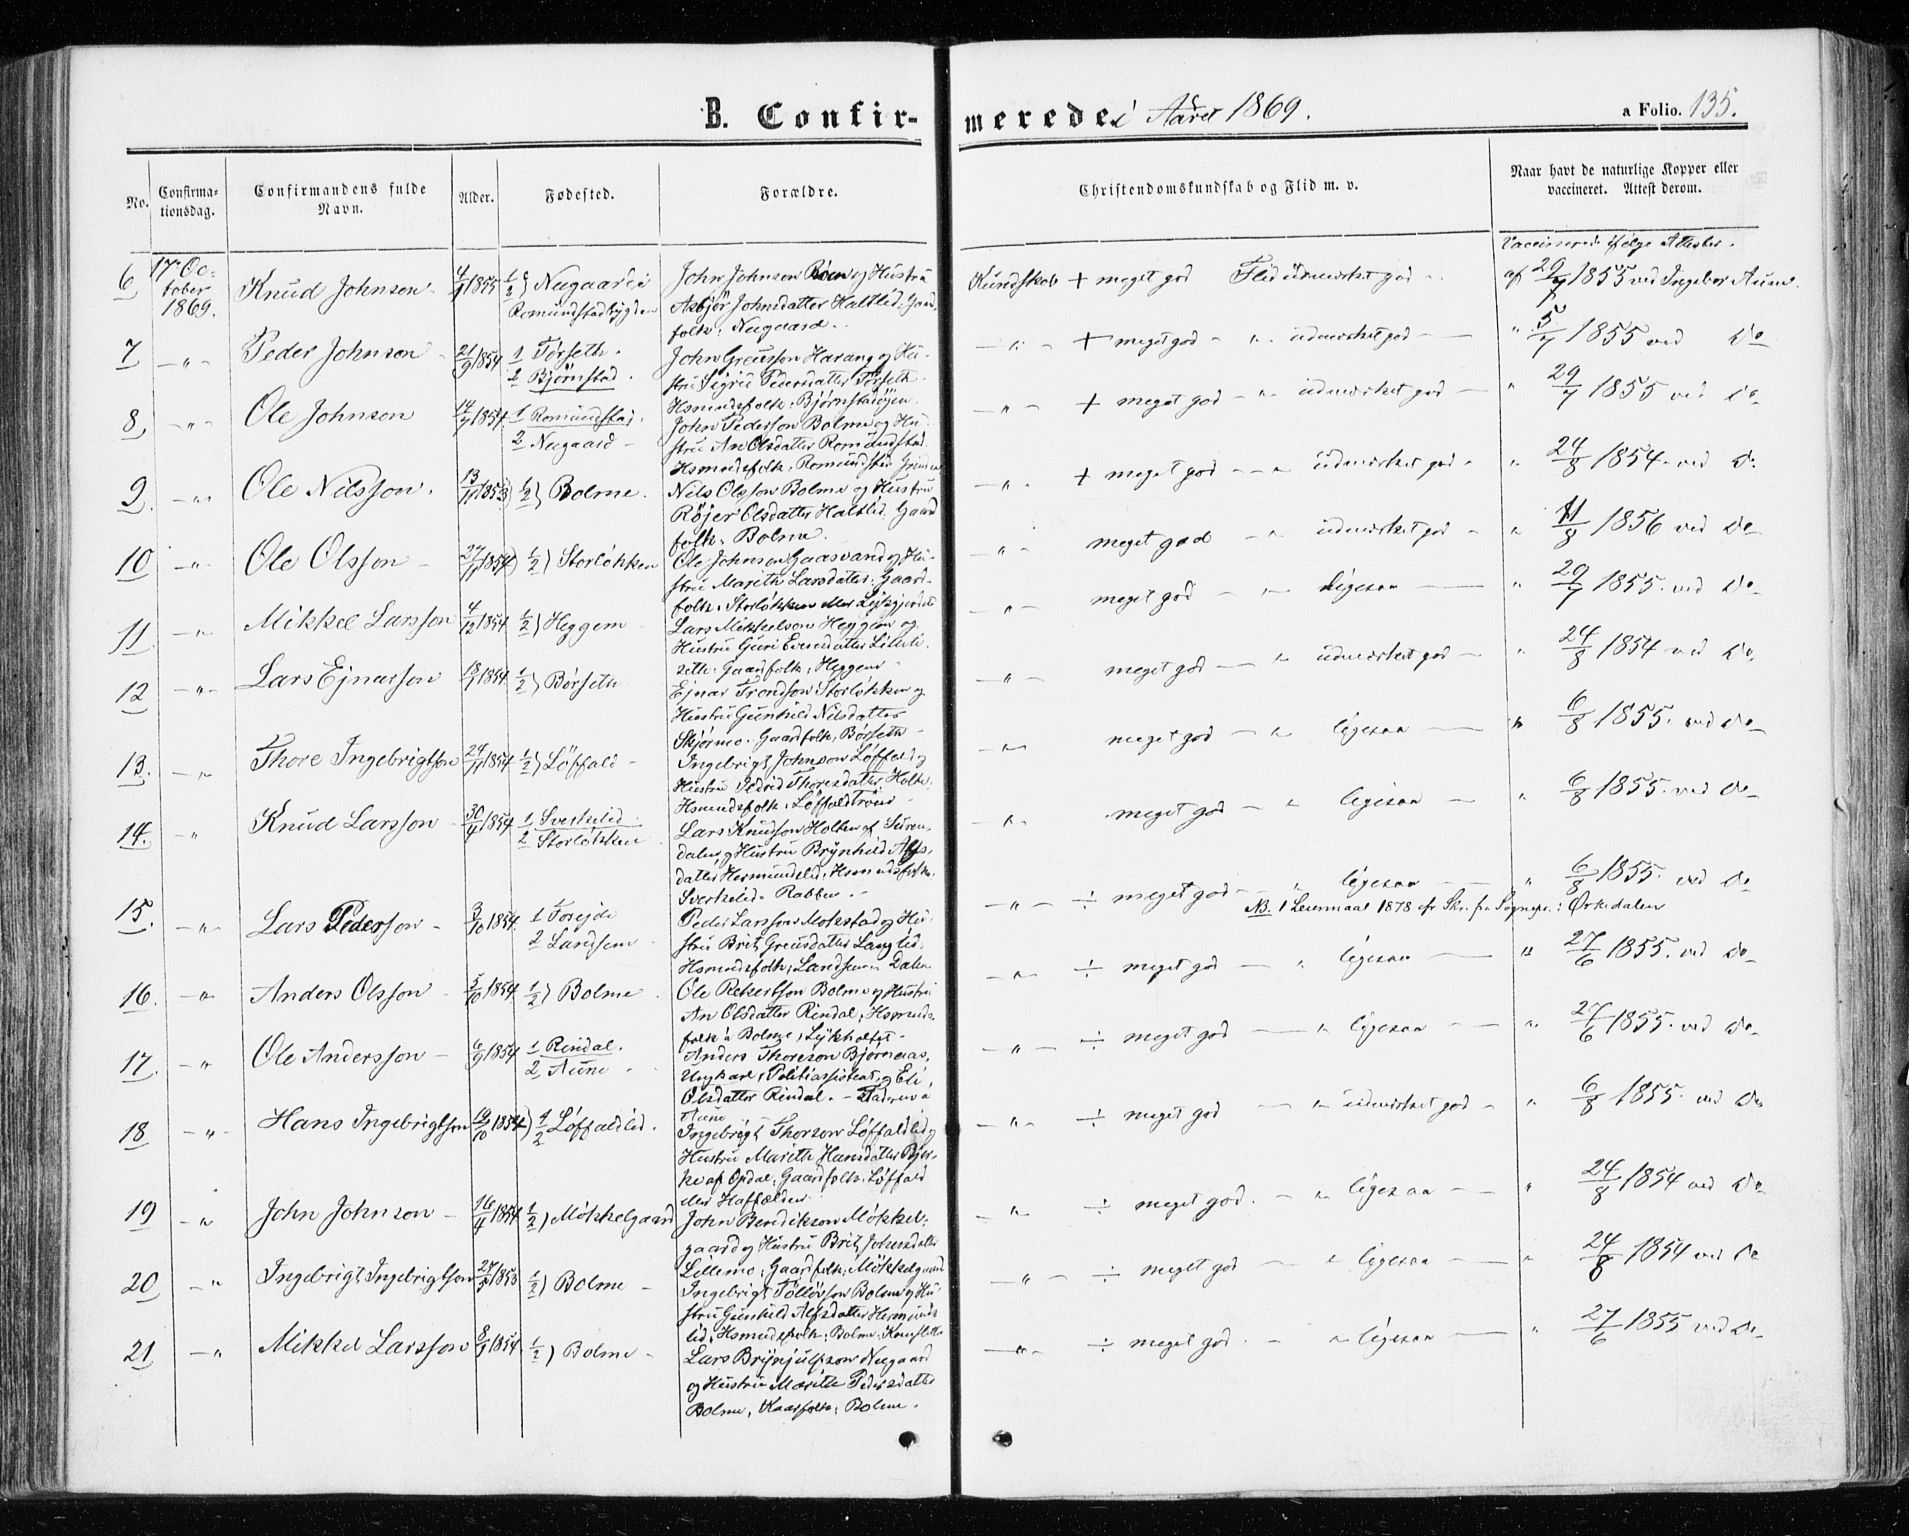 B. Confirmerede i Aaret 1869. a Folio. 135.
No.
Confirmationsdag.
Confirmandens fulde Navn.
Alder.
Fødested.
Forældre.
Christendomskundskab og Flid m. v.
Naar havt de naturlige Kopper eller vaccineret. Attest derom.
6 17. October 1869. Knud Johnson 1855 1/2 } Nugaard i Romundstadbygden
John Johnson Røen og Hustru
Asbjør Johnsdatter Haltlid: Gaard-
folk: Nugaard.
Kundskab + meget god Flid udmærket god
Vaccinerede ifølge Attester
af 29/7 1855 ved Ingebor Aune.
7 -"- Peder Johnson 21/9 1854 1 Torseth. 2 Bjørnstad.
John Greusson Harang og Hu-
stru Sigrid Pedersdatter Torseth.
Hsmndsfolk: Bjørnstadøjen.
-"- + meget god -"- udmærket god
" 5/7 1855 ved Do
8 -"- Ole Johnson 14/7 1854 1 Romundstad. 2 Nugaard
John Pederson Bolme og Hu-
stru An Olsdatter Romundstad.
Hsmndsfolk: Romundstad
-"- + meget god -"- udmærket god
" 29/7 1855 ved Do
9 -"- Ole Nilsson. 13/11 1853 1/2 } Bolme.
Nils Olsson Bolme og Hustru
Røjer Olsdatter Haltlid: Gaard
folk: Bolme.
-"- + meget god -"- udmærket god
" 24/8 1854 ved Do
10 -"- Ole Olsson 27/11 1854 1/2 } Storløkken
Ole Johnson Gaasvand og Hu-
stru Marith Larsdatter: Gaard-
folk: Storløkken
-"- meget god -"- udmærket god
" 11/8 1856 ved Do
11. -"- Mikkel Larsson 4/12 1854 1/2 } Heggem
Lars Mikkelson Heggem og
Hustru Guri Evensdatter
seth: Gaardfolk: Heggem
-"- meget god -"- ligesaa
" 29/7 1855. ved Do
12 -"- Lars Ejnarson 18/1 1854. 1/2 } Børseth
Ejnar Trondson Storløkken og
Hustru Gunhild Nilsdatter
Skjørmo. Gaardfolk: Børseth
-"- meget god -"- udmærket god
" 24/8 1854 ved Do
13. -"- Thore Ingebrigtson 24/11 1854 1/2 } Løffald
Ingebrigt Johnson Løffald og
Hustru Ildrid Thoresdatter Holte.
Hsmndsfolk: Løffaldtrøen
-"- meget god -"- ligesaa
" 6/8 1855. ved Do
14. " Knud Larsson 30/4 1854 1 Sverkelid. 2 Storløkken
Lars Knudson Holten af Suren-
dalen og Hustru Brynhild Alfs-
datter Hermundslid: Hsmndsfolk.
Sverkelid. Rabben.
-"- meget god -"- ligesaa
" 6/8 1855. ved Do
15. -"- Lars Pederson 3/10 1854. 1 Torejde 2 Landsem
Peder Larsson Mokestad og Hu-
stru Brit Greusdatter Langlid.
Hsmndsfolk: Landsem Dalen
-"- ÷ meget god " ligesaa
" 6/8 1855. ved Do
NB. 1 Leiermaal 1878 efr Skr. fra Sognepr. i Ørkedalen
16. -"- Anders Olsson 5/10 1854. 1/2 } Bolme
Ole Rekertson Bolme og Hustru
An Olsdatter Rindal, Hsmnds-
folk à Bolme, Lykholtet
-"- ÷ meget god " ligesaa
" 27/6 1855. ved Do
17. " Ole Andersson 6/9 1854 1 Rindal. 2 Aune
Anders Thoreson Bjørnaas,
Ungkarl, Politiassistent og Eli
Olsdatter Rindal. - Faderen à
Aune
-"- ÷ meget god " ligesaa
" 27/6 1855. ved Do
18 -"- Hans Ingebrigtson 19/10 1854 1/2 } Løffaldlid.
Ingebrigt Thorson Løffaldlid og
Hustru Marith Hansdatter Bjer-
ke af Opdal: Gaardfolk: Løffald
-"- ÷ meget god -"- udmærket god
" 6/8 1855. ved Do
19 " John Johnson 16/4 1854 1/2 } Møkkelgaard
John Bendikson Møkkel-
gaard og Hustru Brit Johnsdatter
Lillemo: Gaardfolk: Møkkelgaard
-"- ÷ meget god. -"- ligesaa
" 24/8 1854 ved Do
20 " Ingebrigt Ingebrigtson 1853 1/2 } Bolme
Ingebrigt Tølløvson Bolme og Hu-
stru Gunhild Alfsdatter Hermunds-
lid: Hsmndsfolk: Bolme:
-"- ÷ meget god " ligesaa
" 24/8 1854 ved Do
21 -"- Mikkel Larsson 8/9 1854. 1/2 } Bolme
Lars Brynjulfson Nugaard
og Hustru Marith Pedersdatter
Bolme, Gaardfolk: Bolme.
-"- ÷ meget god. " ligesaa
" 27/6 1855 ved Do